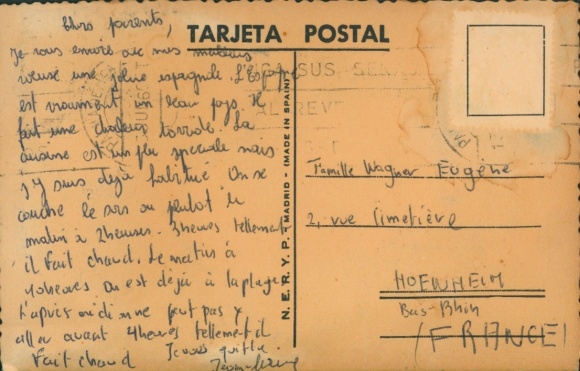 Chers parents,
TARJETA POSTAL
Je vous envoie avec mes meilleurs
une jolie espagnole. L'Espagne
est vraiment un beau pays. Il
fait une chaleur torride. La
cuisine est un peu speciale mais
j'y suis déjà habitué On se
couche le soir ou plutot le
matin à 2heures - 3heures tellement
il fait chaud. Le matin à
10heures on est déjà à la plage
L'après midi on ne peut pas y
aller avant 4heures tellement il
fait chaud Je vous quitte.
N. E. R. Y. P. - (MADRID - (MADE IN SPAIN)
Famille Wagner Eugène
2, rue Cimetière
HOENHEIM
Bas-Rhin
(FRANCE)